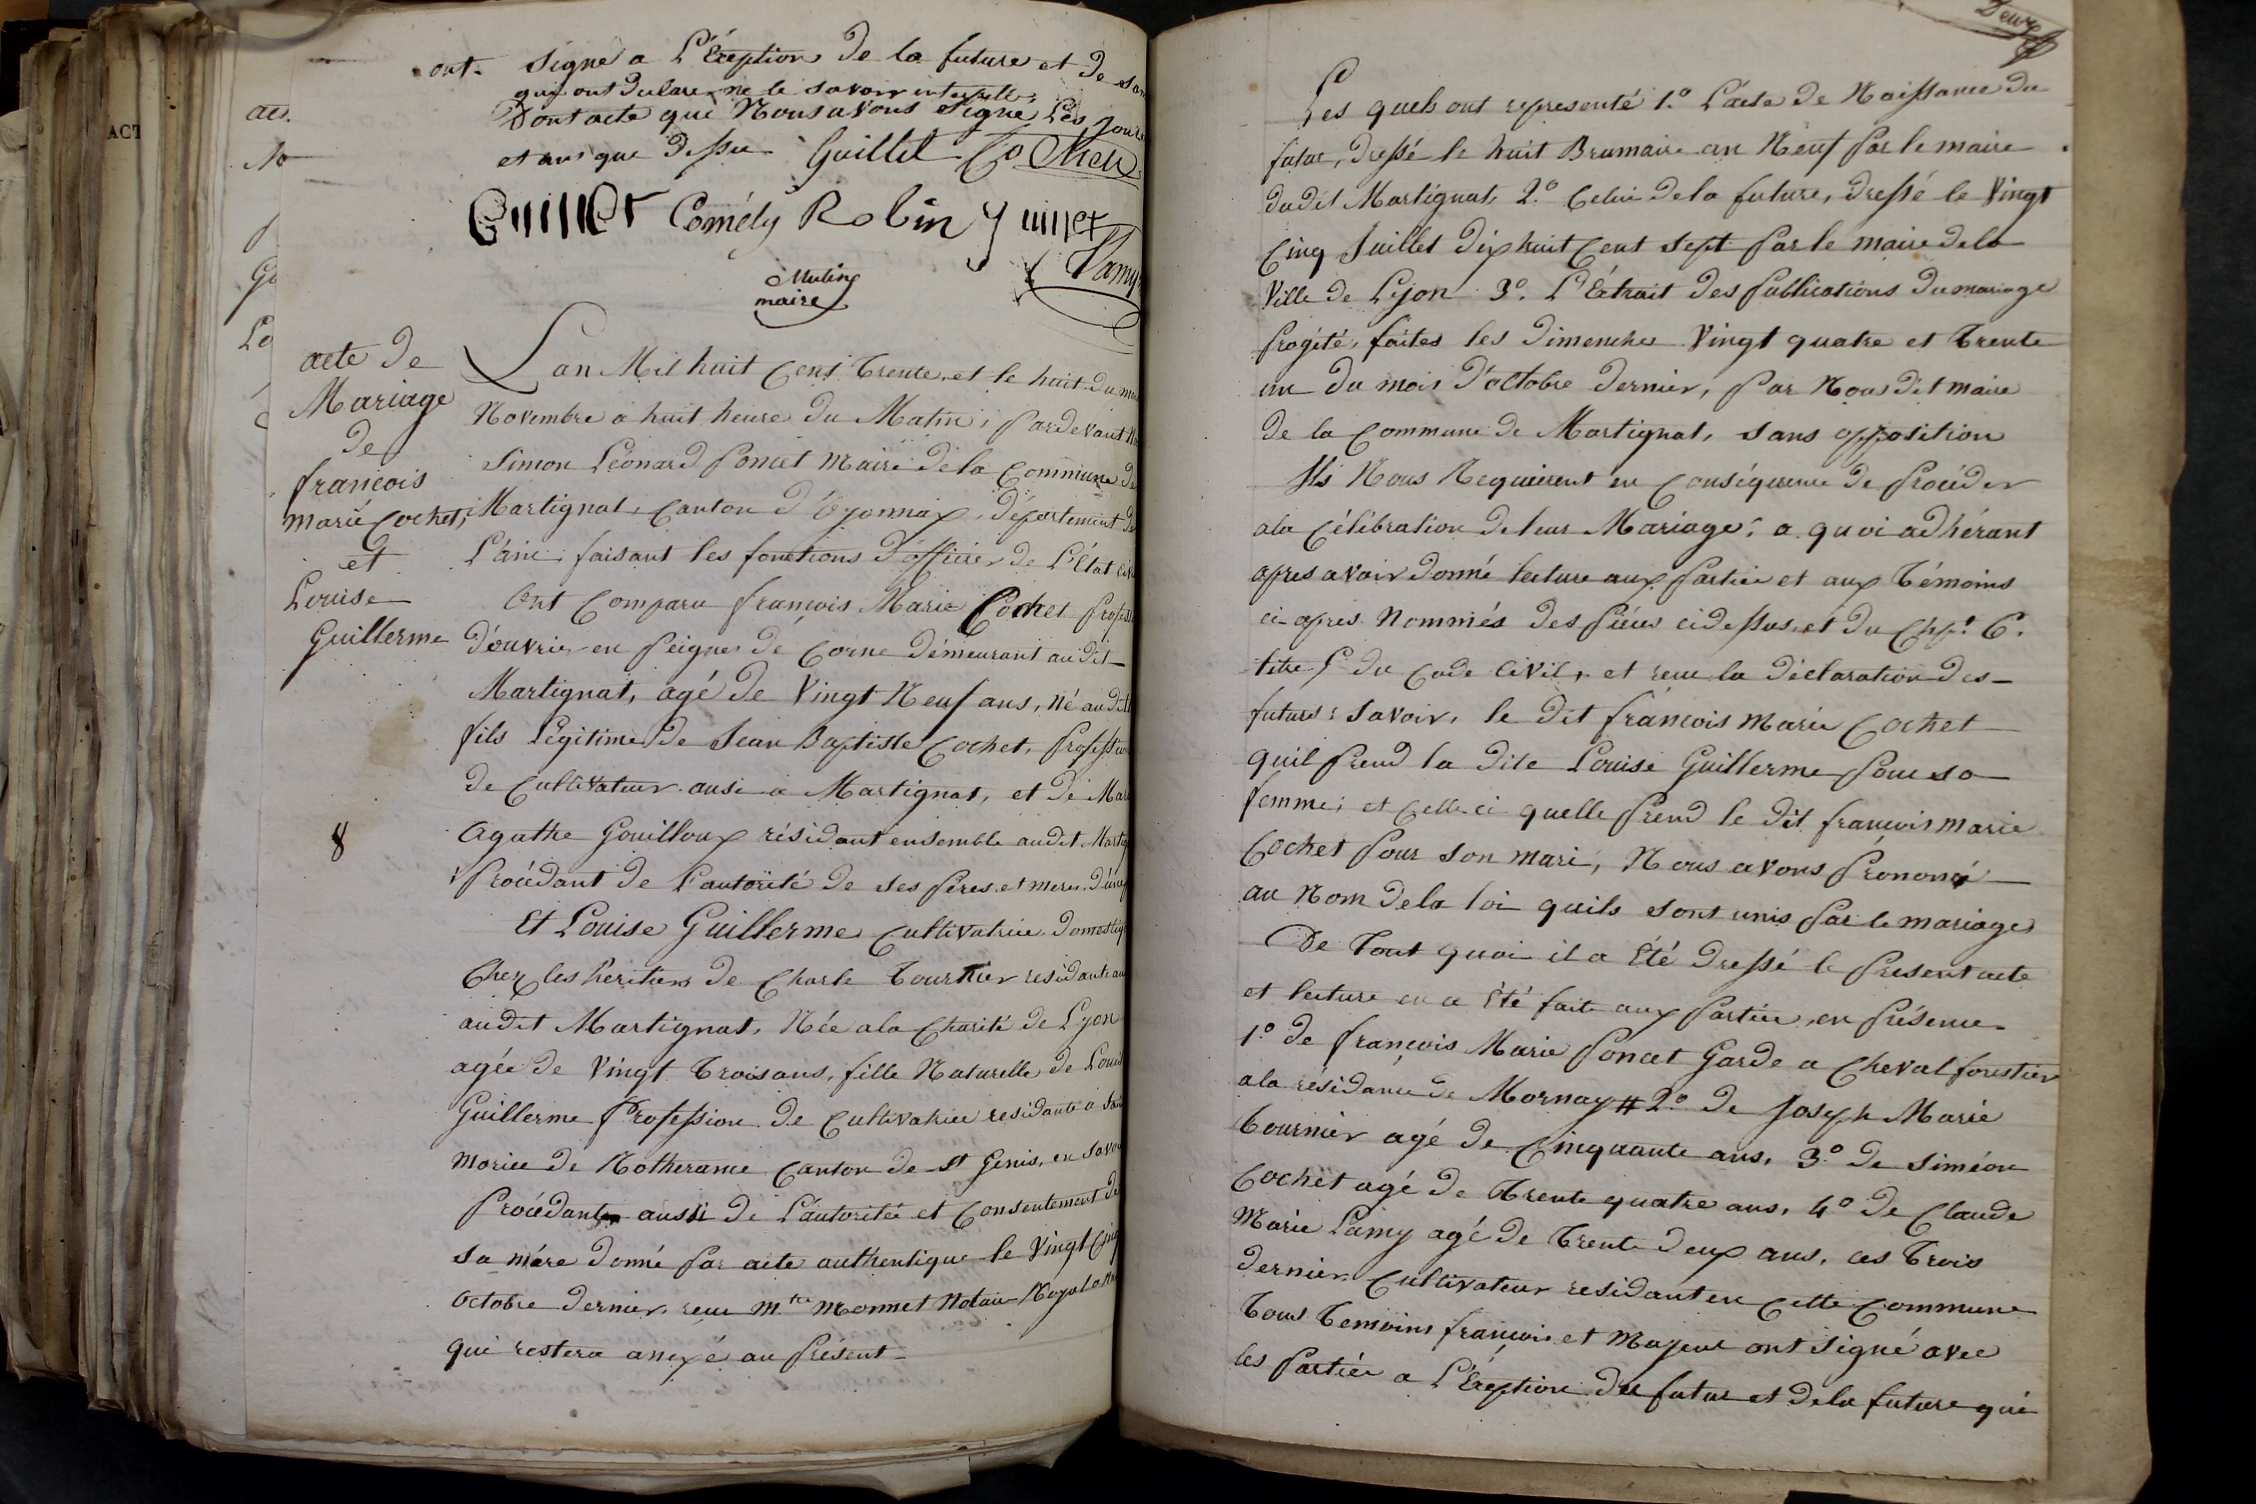 ont signé a L'Exeption de la future et de son
qui ont declaré ne le savoir interpellé.
Dont acte que Nous avons signé Les jour
et an que dessu Guillet Cochet
Guillet Comély Robin Guillet
Lamy
Mulin
maire
acte de
Mariage
de
francois
marie Cochet,
et
Louise
Guillerme
8
L'an Mil huit Cent Trente, et le huit du mois
Novembre a huit heure du Matin, Pardevant N
Simon Léonard Poncet Maire de la Commune de
Martignat, Canton d'Oyonnax, département de
L'ain, faisant les fonctions d'officier de L'état civ
Ont Comparu françois Marie Cochet Profess
d'ouvrier en Peignes de Corne démeurant audit
Martignat, agé de Vingt Neuf ans, Né audit
fils Légitime de Jean Baptiste Cochet, Profession
de Cultivateur ausi a Martignat, et de Mar
Agathe Gouilloux résidant ensemble audit Martig
Procédant de L'autorité de ses Peres et meres d'une p
Et Louise Guillerme Cultivatrice Domestiq
Chez les heritiers de Charle Tournier residante au
audit Martignat, Née a la Charité de Lyon
agée de Vingt Trois ans, fille Naturelle de Louis
Guillerme Profession de Cultivatrice residante a Sain
Morice de Rotherame Canton de St Genis, en Savoi
Procédante aussi de L'autoritée et Consentement de
sa mére donné par acte authentique le Vingt Cinq
Octobre dernier, reçu M.tre Monnet Notaire Royal a
qui restera anexé au Présent
Deux
Les quels ont representé 1.° L'acte de Naissance du
futur, dressé le huit Brumaire an Neuf Par le maire
dudit Martignat, 2.° Celui de la future, dressé le Vingt
Cinq Juillet dix huit Cent sept Par le maire de la
Ville de Lyon 3.° L'Extrait des Publications du mariage
Progété, faites les dimenches Vingt quatre et Trente
un du mois d'octobre dernier, Par Nous dit maire
de la Commune de Martignat, sans opposition
Ils Nous Requierent en Conséquence de Procéder
a la Célébration de leur Mariage; a quoi adhérant
apres avoir donné lecture aux Parties et aux Témoins
ci-apres Nommés des Piéces cidessus, et du Chp.e 6.
titre 5 du Code Civil, et recu la déclaration des
futurs: savoir, le dit francois Marie Cochet
quil Prend la dite Louise Guillerme Pour sa
femme; et Celle ci quelle Prend le dit francois marie
Cochet Pour son mari, Nous avons Prononcé
au Nom de la loi quils sont unis Par le mariage
De Tout quoi il a Été dressé le Présent acte
et lecture en a Été faite aux Parties, en Présence
1.° de françois Marie Poncet Garde a Cheval forestier
a la résidance de Mornay # 2.° de Joseph Marie
Tournier agé de Cinquante ans, 3.° de Siméon
Cochet agé de Trente quatre ans, 4.° de Claude
Marie Lamy agé de Trente deux ans, ces Trois
dernier Cultivateur residant en Cette Commune
Tous Temoins francois et Majeur ont signé avec
les Parties a L'Exeption du futur et de la future qui